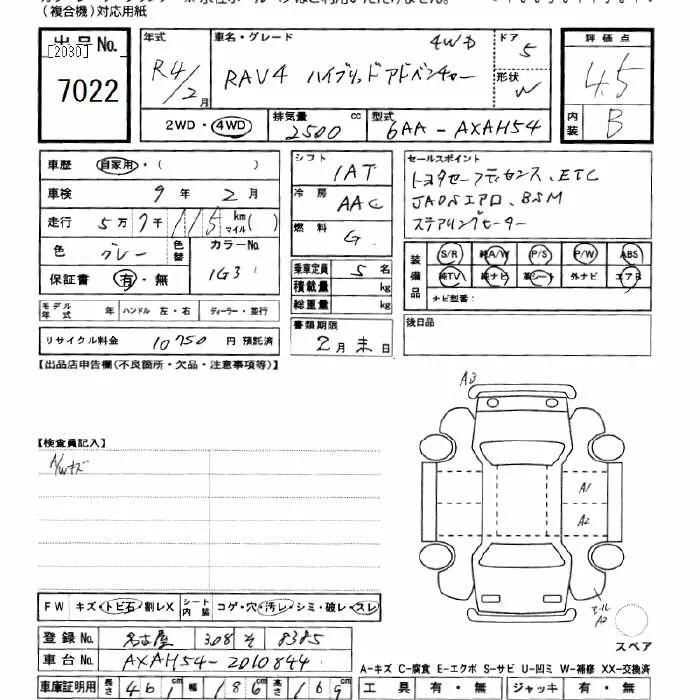 (複合機)対応用紙
出品No. [2030] 7022
年式 R4/2月
車名・グレード RAV4 ハイブリッドアドベンチャー 4WD
ドア 5
形状 W
評価点 4.5
内装 B
2WD・4WD
排気量 2500 cc
型式 6AA-AXAH54
車歴 自家用・( )
車検 9年 2月
走行 5万7千115 km マイル( )
色 グレー 色替 カラーNo. 1G3
保証書 有・無
モデル年式 年 ハンドル 左・右 ディーラー・並行
リサイクル料金 10750 円 預託済
シフト IAT
冷房 AAC
燃料 G
乗車定員 5 名
積載量 kg
総重量 kg
書類期限 2月末日
セールスポイント
トヨタセーフティセンス、ETC
JAOSエアロ、BSM
ステアリングヒーター
装備品 S/R 純A/W P/S P/W ABS
純TV 純ナビ 革シート 外ナビ エアB
ナビ型番:
後日品
【出品店申告欄(不良箇所・欠品・注意事項等)】
【検査員記入】
A/Wキズ
A3
A1
A2
A2
スペア
FW キズ・トビ石・割レX シート内装 コゲ・穴・汚レ・シミ・破レ・スレ
登録No. 名古屋 308 そ 8385
車台No. AXAH54-2010844
車庫証明用 長さ 461cm 幅 186cm 高さ 169
A-キズ C-腐食 E-エクボ S-サビ U-凹ミ W-補修 XX-交換済
工具 有・無 ジャッキ 有・無